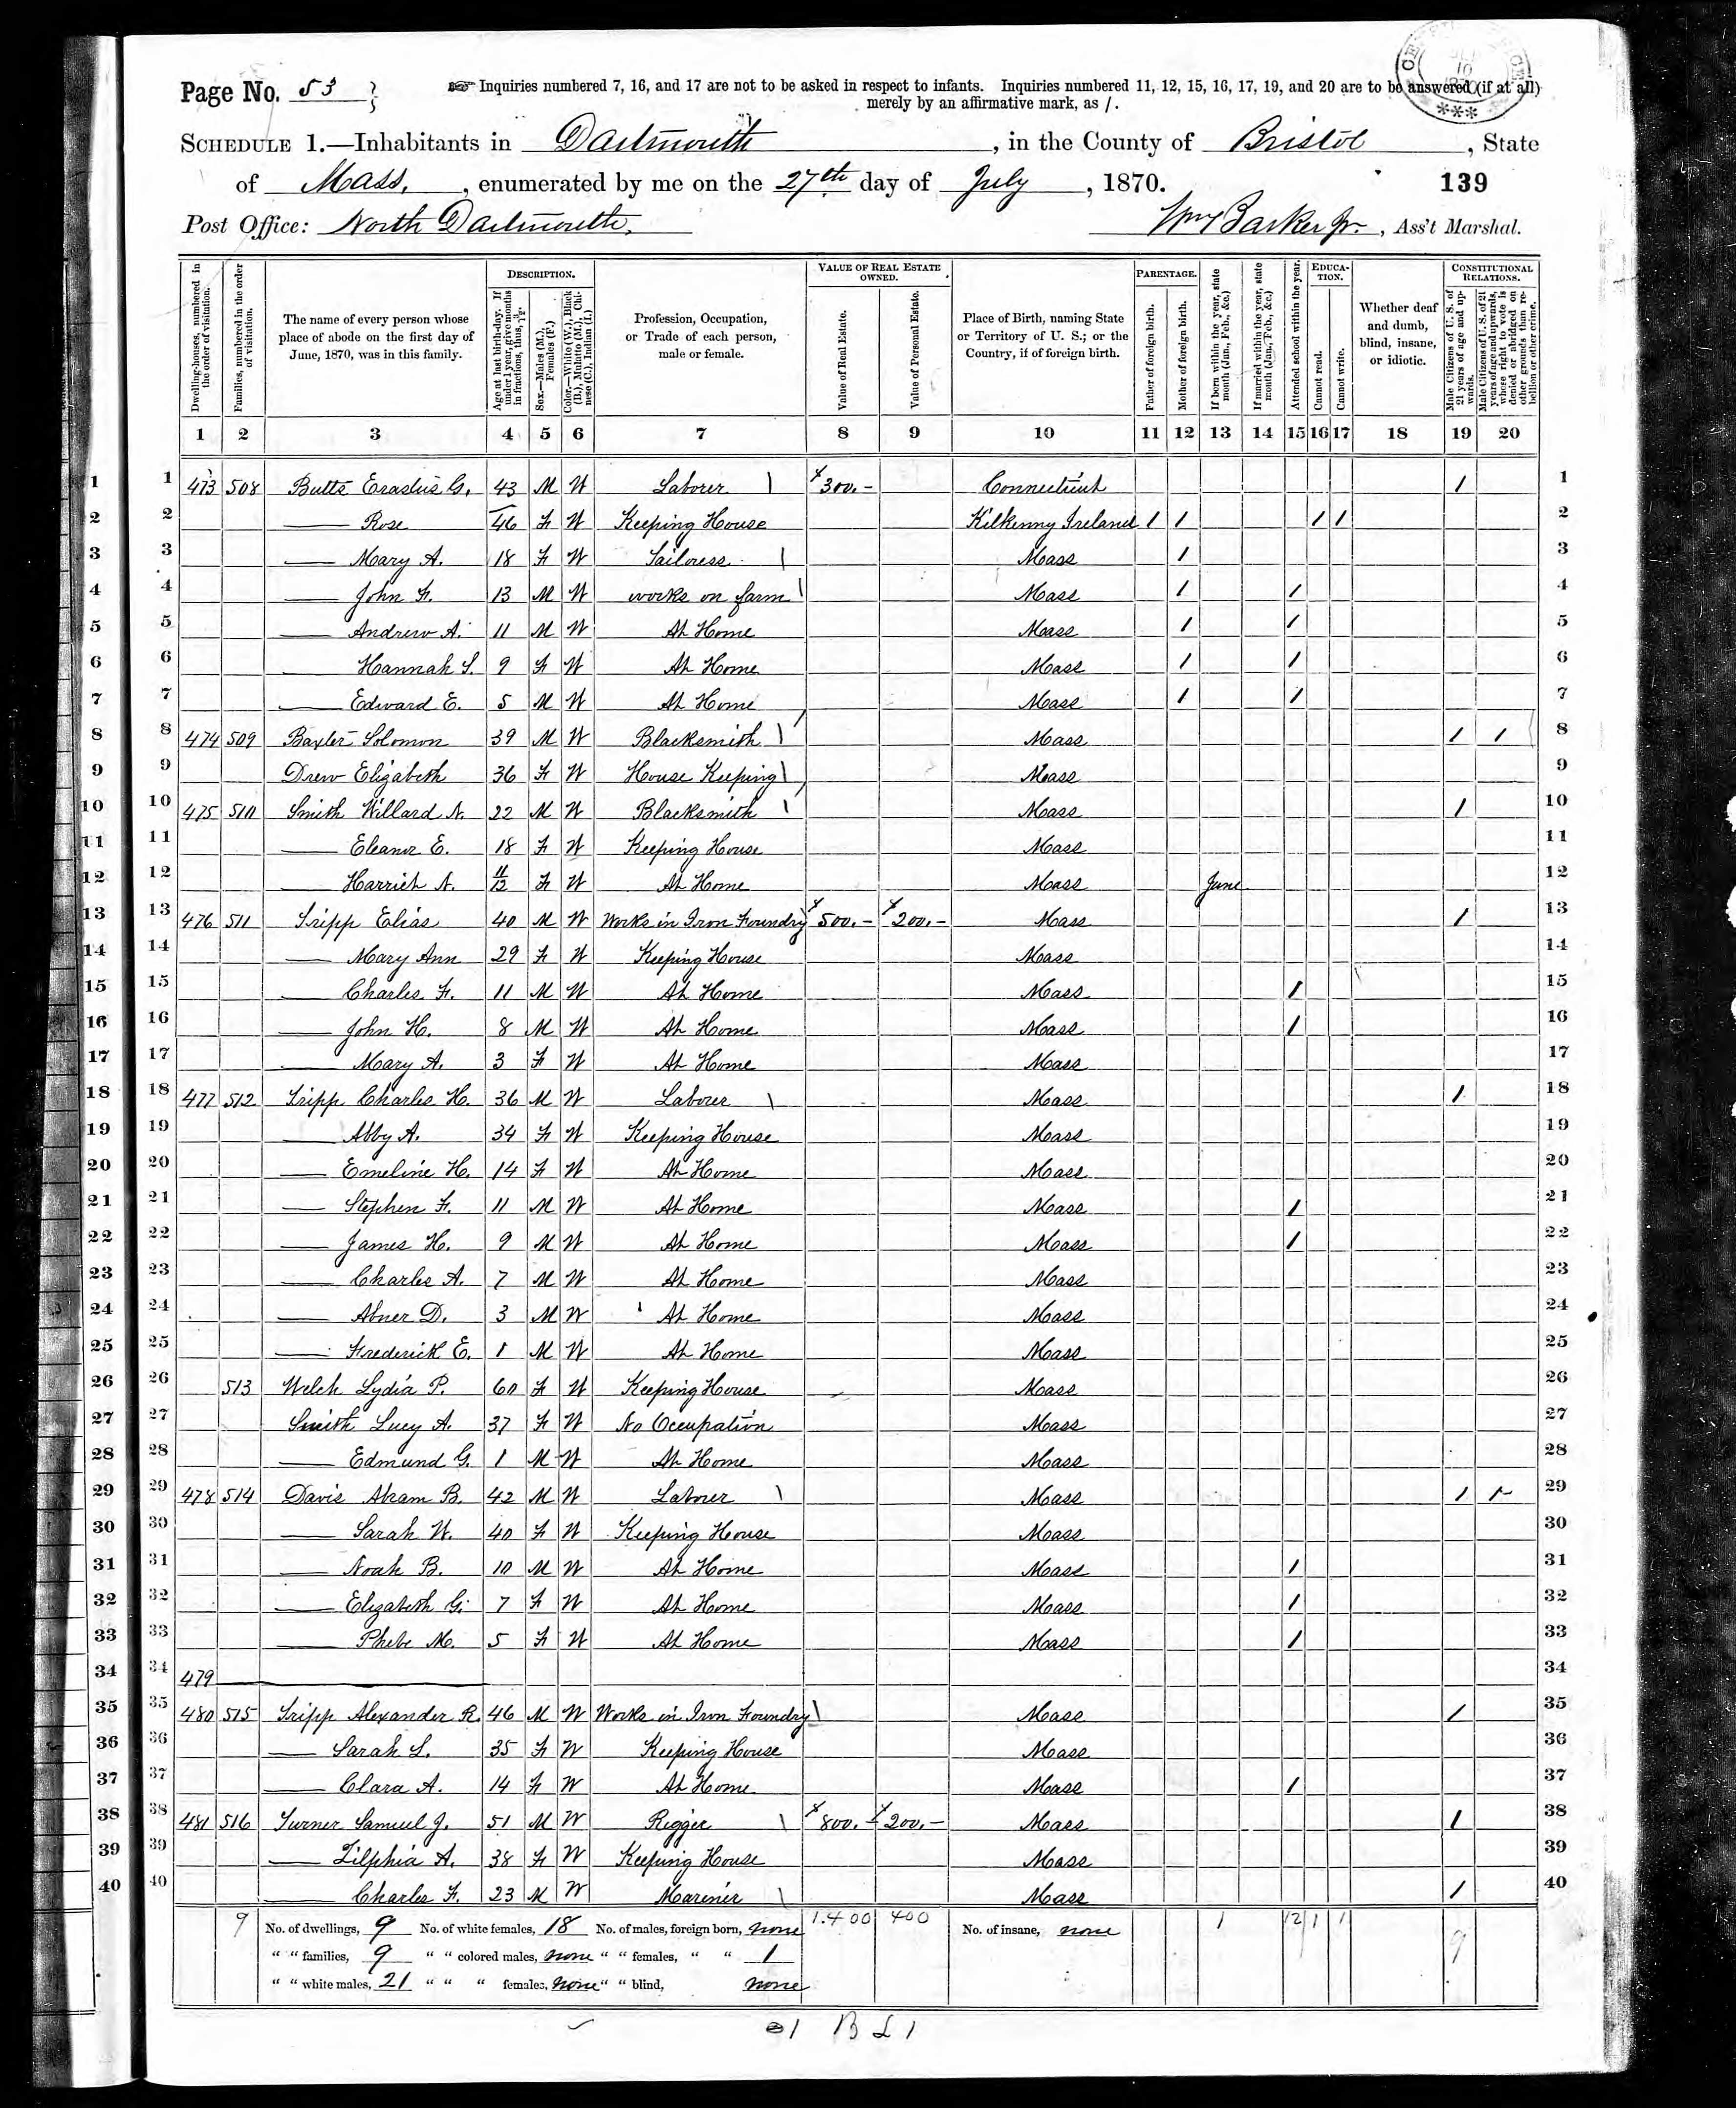 Page No. 53
Inquiries numbered 7, 16, and 17 are not to be asked in respect to infants. Inquiries numbered 11, 12, 15, 16, 17, 19, and 20 are to be answered (if at all)
merely by an affirmative mark, as /.
SCHEDULE 1.—Inhabitants in Dartmouth, in the County of Bristol, State
of Mass, enumerated by me on the 27th day of July, 1870. 139
Post Office: North Dartmouth. Wm Barker Jr., Ass't Marshal.
Dwelling-houses, numbered in the order of visitation.
Families, numbered in the order of visitation.
The name of every person whose place of abode on the first day of June, 1870, was in this family.
DESCRIPTION.
Age at last birth-day. If under 1 year, give months in fractions, thus, 3/12.
Sex.—Males (M.), Females (F.)
Color.—White (W.), Black (B.), Mulatto (M.), Chinese (C.), Indian (I.)
Profession, Occupation, or Trade of each person, male or female.
VALUE OF REAL ESTATE OWNED.
Value of Real Estate.
Value of Personal Estate.
Place of Birth, naming State or Territory of U. S.; or the Country, if of foreign birth.
PARENTAGE.
Father of foreign birth.
Mother of foreign birth.
If born within the year, state month (Jan., Feb., &c.)
If married within the year, state month (Jan., Feb., &c.)
EDUCATION.
Attended school within the year.
Cannot read.
Cannot write.
Whether deaf and dumb, blind, insane, or idiotic.
CONSTITUTIONAL RELATIONS.
Male Citizens of U. S. of 21 years of age and upwards.
Male Citizens of U. S. of 21 years of age and upwards, whose right to vote is denied or abridged on other grounds than rebellion or other crime.
1 2 3 4 5 6 7 8 9 10 11 12 13 14 15 16 17 18 19 20
1 1 473 508 Butts Erastus G. 43 M W Laborer $300.- Connecticut / 1
2 2 —— Rose 46 F W Keeping House Kilkenny Ireland / / / / 2
3 3 —— Mary A. 18 F W Tailoress Mass / 3
4 4 —— John F. 13 M W works on farm Mass / / 4
5 5 —— Andrew A. 11 M W At Home Mass / / 5
6 6 —— Hannah S. 9 F W At Home Mass / / 6
7 7 —— Edward E. 5 M W At Home Mass / / 7
8 8 474 509 Baxter Solomon 39 M W Blacksmith Mass / / 8
9 9 Drew Elizabeth 36 F W House Keeping Mass 9
10 10 475 510 Smith Willard N. 22 M W Blacksmith Mass / 10
11 11 —— Eleanor E. 18 F W Keeping House Mass 11
12 12 —— Harriet N. 11/12 F W At Home Mass June 12
13 13 476 511 Tripp Elias 40 M W Works in Iron Foundry $500.- $200.- Mass / 13
14 14 —— Mary Ann 29 F W Keeping House Mass 14
15 15 —— Charles F. 11 M W At Home Mass / 15
16 16 —— John H. 8 M W At Home Mass / 16
17 17 —— Mary A. 3 F W At Home Mass 17
18 18 477 512 Tripp Charles H. 36 M W Laborer Mass / 18
19 19 —— Abby A. 34 F W Keeping House Mass 19
20 20 —— Emeline H. 14 F W At Home Mass 20
21 21 —— Stephen F. 11 M W At Home Mass / 21
22 22 —— James H. 9 M W At Home Mass / 22
23 23 —— Charles A. 7 M W At Home Mass 23
24 24 —— Abner D. 3 M W At Home Mass 24
25 25 —— Frederick E. 1 M W At Home Mass 25
26 26 513 Welch Lydia P. 60 F W Keeping House Mass 26
27 27 Smith Lucy A. 37 F W No Occupation Mass 27
28 28 —— Edmund G. 1 M W At Home Mass 28
29 29 478 514 Davis Abram B. 42 M W Laborer Mass / / 29
30 30 —— Sarah W. 40 F W Keeping House Mass 30
31 31 —— Noah B. 10 M W At Home Mass / 31
32 32 —— Elizabeth G. 7 F W At Home Mass / 32
33 33 —— Phebe M. 5 F W At Home Mass / 33
34 34 479 —— 34
35 35 480 515 Tripp Alexander R. 46 M W Works in Iron Foundry Mass / 35
36 36 —— Sarah L. 35 F W Keeping House Mass 36
37 37 —— Clara A. 14 F W At Home Mass / 37
38 38 481 516 Turner Samuel J. 51 M W Rigger $800.- $200.- Mass / 38
39 39 —— Zilphia A. 38 F W Keeping House Mass 39
40 40 —— Charles F. 23 M W Mariner Mass / 40
9 No. of dwellings, 9 No. of white females, 18 No. of males, foreign born, none 1.400 400 No. of insane, none 1 12 1 1 9
" " families, 9 " " colored males, none " " females, " " 1
" " white males, 21 " " " females, none " " blind, none